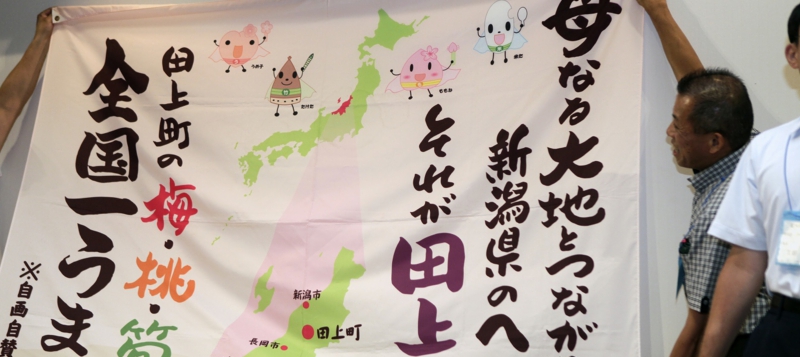 母なる大地とつなが
新潟県のへ
それが田上
田上町の梅・桃・筍
全国一うま
※自画自賛
新潟市
田上町
長岡市